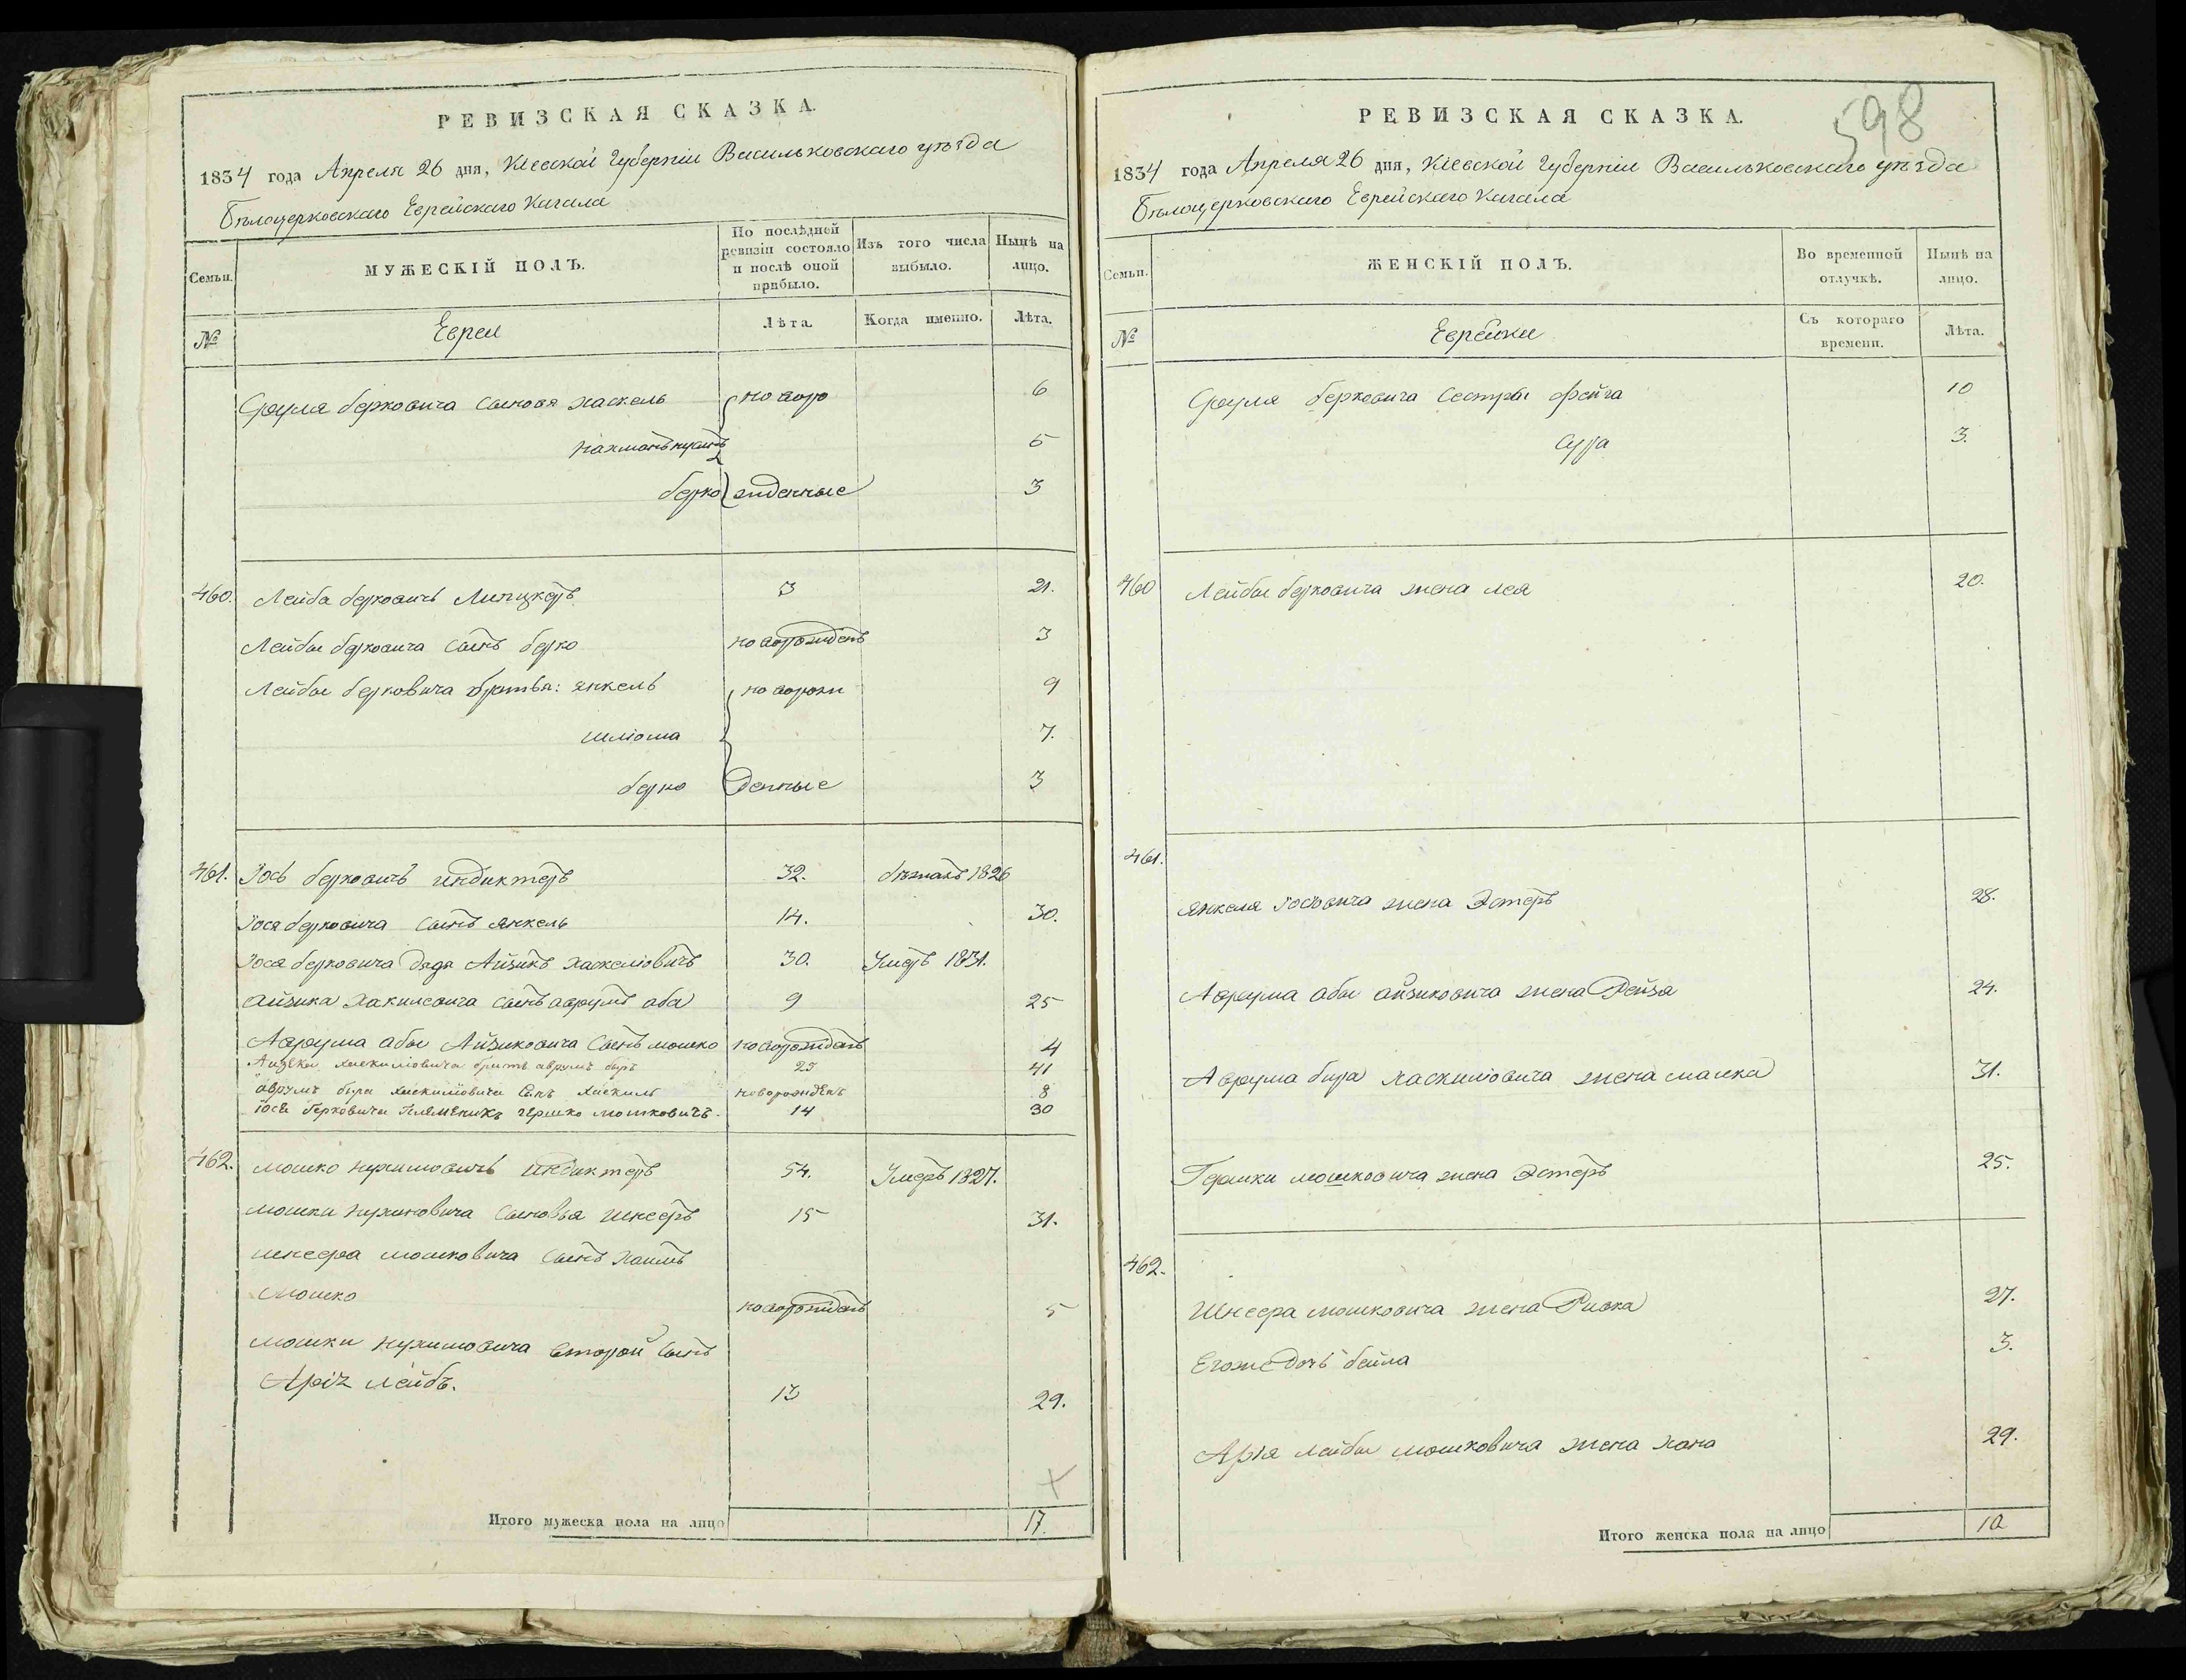 РЕВИЗСКАЯ СКАЗКА.
1834 года Апреля 26 дня, Кіевской Губерніи Васильковскаго уѣзда
Бѣлоцерковскаго Еврейскаго Кагала
Семьи.
МУЖЕСКІЙ ПОЛЪ.
По послѣдней ревизіи состояло и послѣ оной прибыло.
Изъ того числа выбыло.
Нынѣ на лицо.
№
Евреи
Лѣта.
Когда именно.
Лѣта.
Сруля берковича сыновя хаскель новоро 6
нахманъ 5
берко жденные 3
460. Лейба берковичъ 3 21.
Лейбы берковича сынъ берко новорожденъ 3
Лейбы берковича братья: янкель новорож 9
шліома 7.
берко денные 3
461. Іось берковичъ индиктеръ 32. бѣжалъ 1826
Іося берковича сынъ янкель 14. 30.
Іося берковича дядя Айзикъ хаскеліовичъ 30. Умеръ 1831.
Айзика сынъ аврумъ аба 9 25
Аврума абы Айзиковича сынъ мошко новорожденъ 4
Айзика хаскиліовича братъ аврумъ беръ 25 41
аврумъ бера хаскиліовича сынъ хаскиль новорожденъ 8
Іося берковича племеникъ гершко мошковичъ. 14 30
462. мошко нухимовичъ индиктеръ 54. Умеръ 1827.
мошки нухимовича сыновья шнееръ 15 31.
шнеера мошковича сынъ хаимъ
мошко новорожденъ 5
мошки нухимовича второй сынъ
Аріэ лейбъ. 13 29.
Итого мужеска пола на лицо 17.
598
РЕВИЗСКАЯ СКАЗКА.
1834 года Апреля 26 дня, Кіевской Губерніи Васильковскаго уѣзда
Бѣлоцерковскаго Еврейскаго Кагала
Семьи.
ЖЕНСКІЙ ПОЛЪ.
Во временной отлучкѣ.
Нынѣ на лицо.
№
Еврейки
Съ котораго времени.
Лѣта.
Сруля берковича сестры фейга 10
сура 3.
460 Лейбы берковича жена лея 20.
461.
янкеля Іосіовича жена Эстеръ 28.
Аврума абы айзиковича жена Рейзя 24.
Аврума бера хаскиліовича жена малка 31.
Гершки мошковича жена Эстеръ 25.
462.
Шнеера мошковича жена Ривка 27.
Егоже дочь бейла 3.
Арія лейбы мошковича жена хана 29.
Итого женска пола на лицо 10